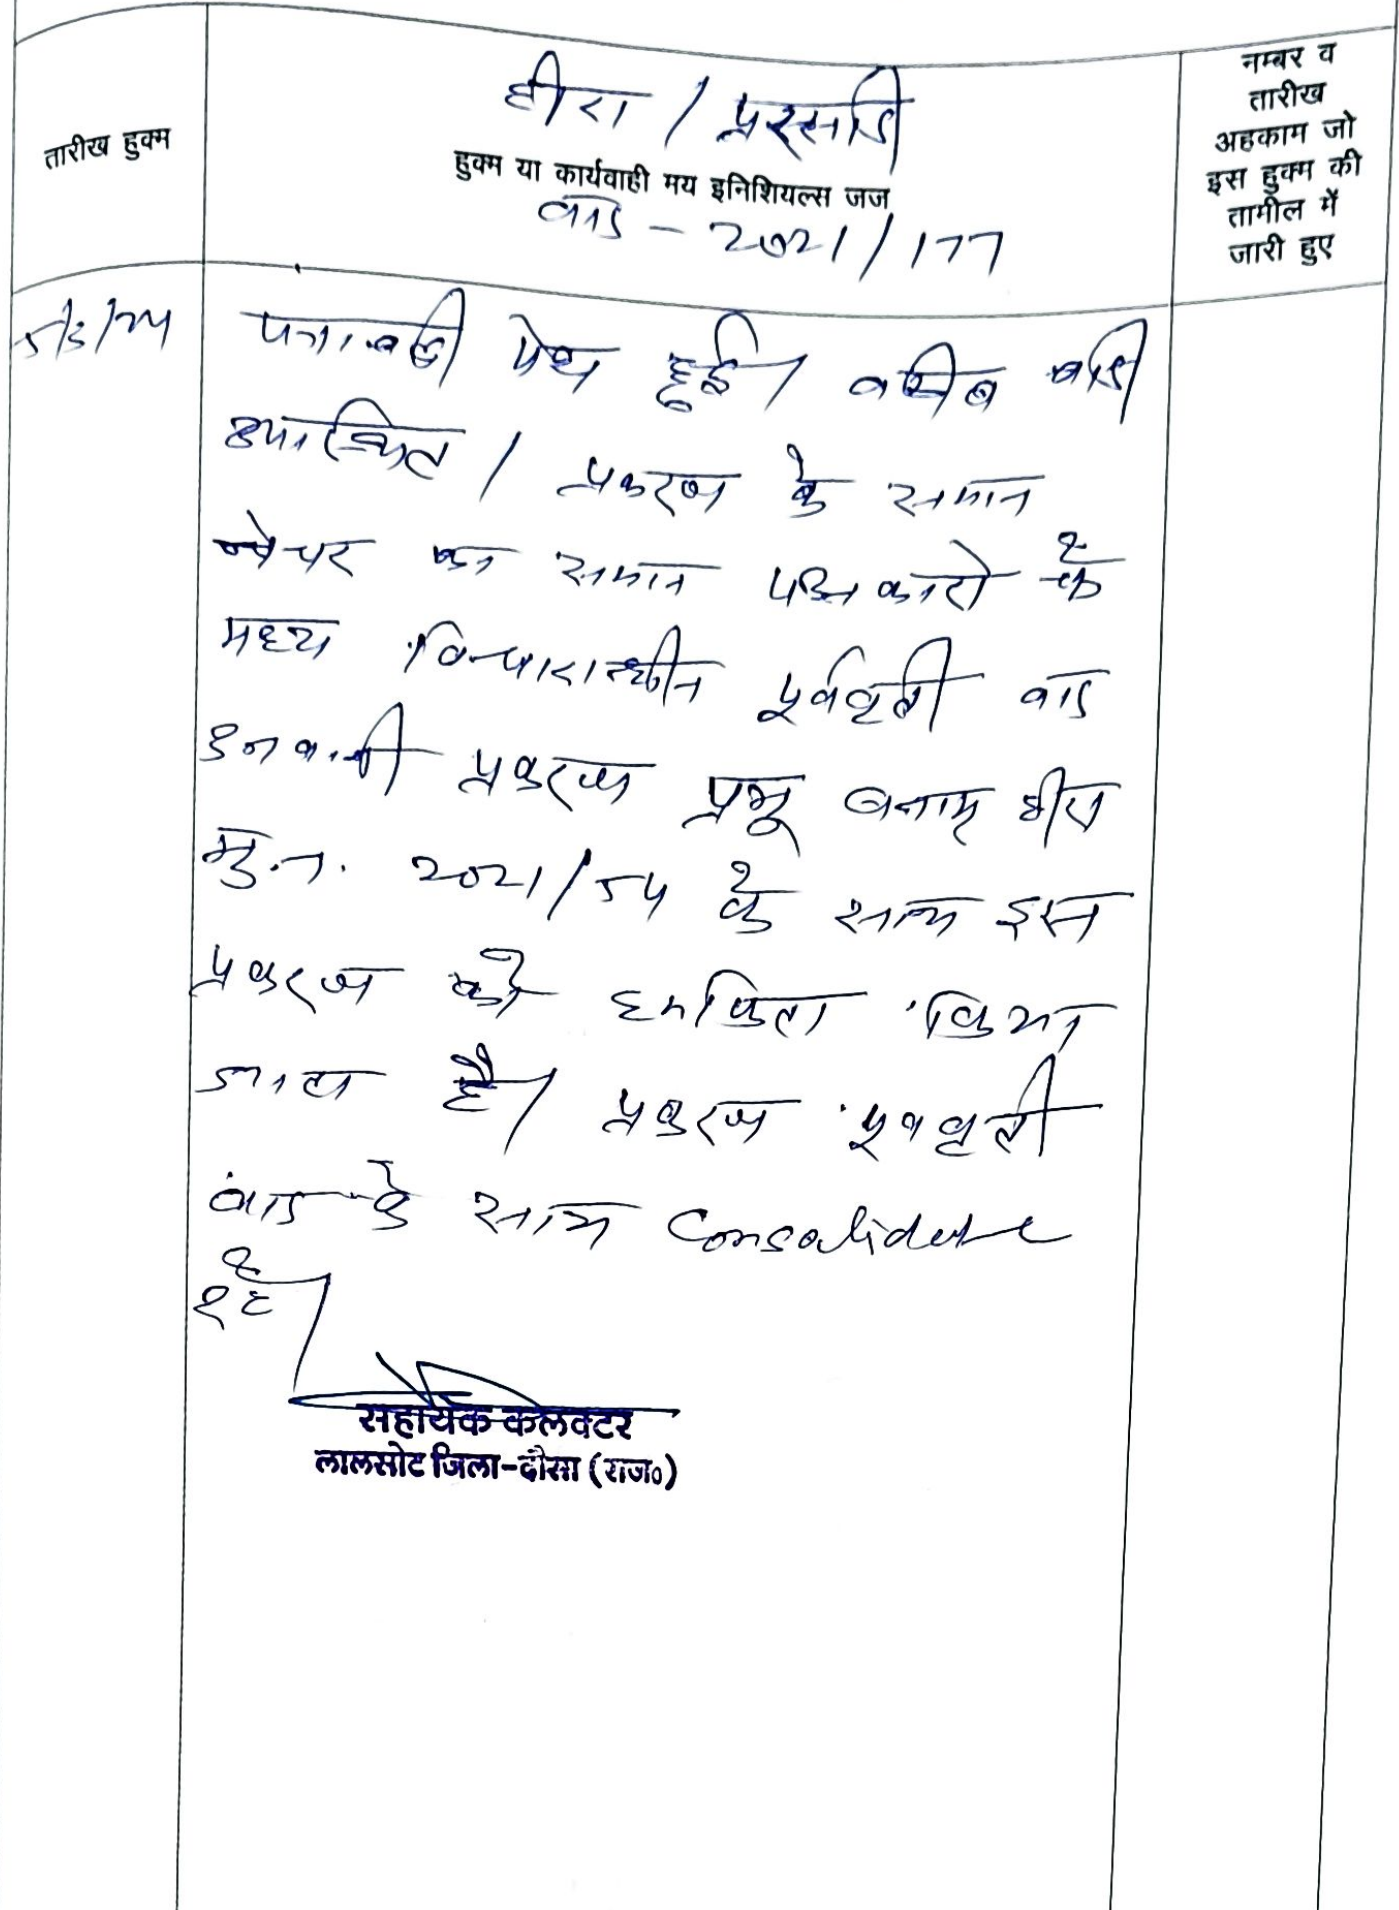 हीरा / प्रहसादि
तारीख हुक्म
हुक्म या कार्यवाही मय इनिशियल्स जज
नम्बर व
तारीख
अहकाम जो
इस हुक्म की
तामील में
जारी हुए
वाद - 2021/177
5/3/24
पत्रावली पेश हुई। वकील वादी
उपस्थित। प्रकरण के समान
नेचर का समान पक्षकारो के
मध्य विचाराधीन पूर्ववृती वाद
उनवानी प्रकरण प्रभू बनाम हीरा
मु.न. 2021/54 के साथ इस
प्रकरण को किया
जाता है। प्रकरण पूववृती
वाद के साथ Consolidate
रहे।
सहायक कलक्टर
लालसोट जिला-दौसा (राज०)